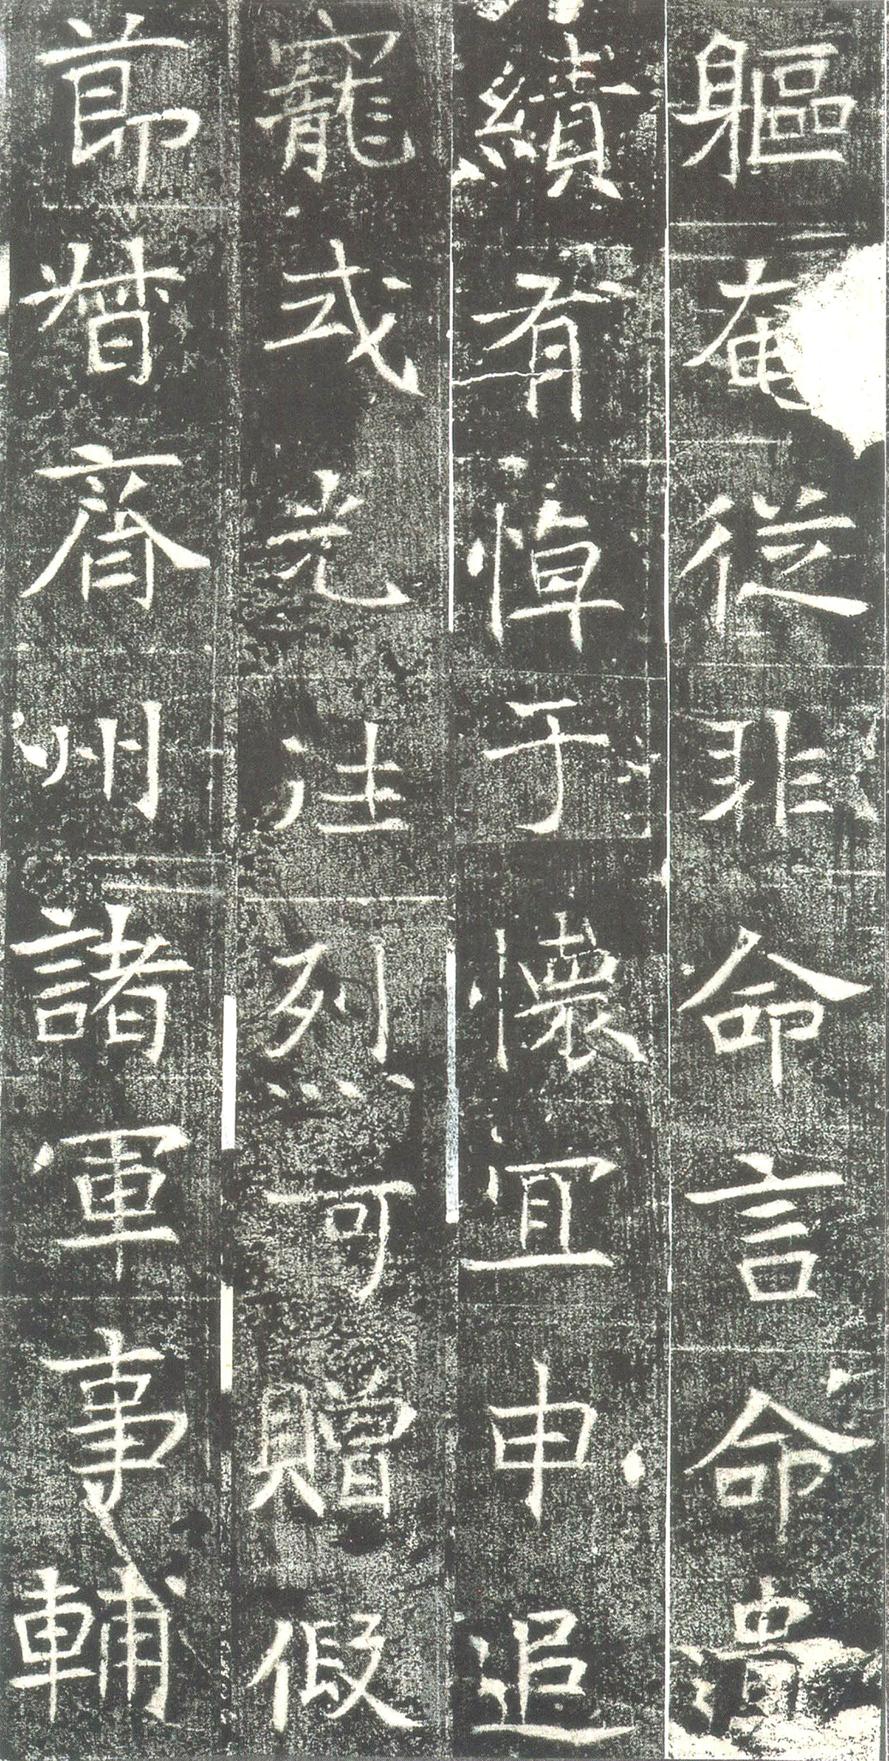 軀奄從非命言命遺
績有悼于懷冝申追
寵式光往烈可贈假
節督齊州諸軍事輔